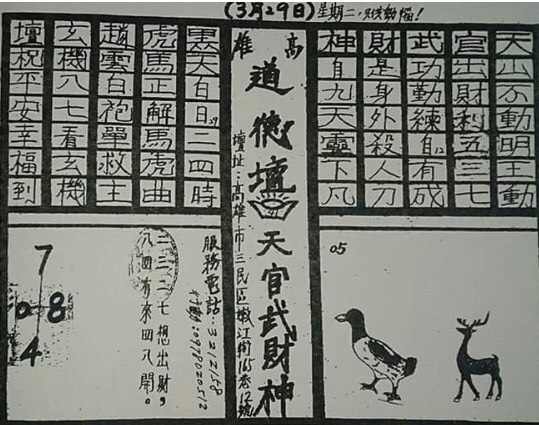 (3月29日) 星期二,
高雄
天山不動明王動
官出財利五三七
武功勤練自有成
財是身外殺人刀
神自九天靈下凡
道德壇 天官武財神
壇址:高雄市三民區嫩江街165巷12號
黑大白日二四時
虎馬正解馬虎曲
趙雲白袍單救主
玄機八七看玄機
壇祝平安幸福到
05
服務電話:3212158
行動:
二三二七想出財,
八四有來四八開。
7
0 8
4